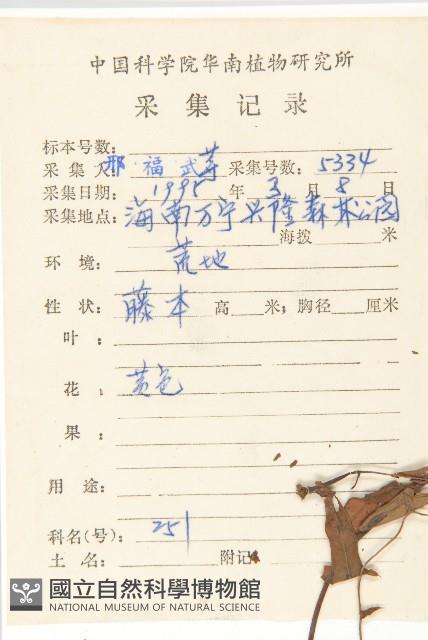 中国科学院华南植物研究所
采集记录
标本号数:
采集人: 邢福武等 采集号数: 5334
采集日期: 1995 年 3 月 8 日
采集地点: 海南万宁兴隆森林公园
海拨 米
环境: 荒地
性状: 藤本 高 米; 胸径 厘米
叶:
花: 黄色
果:
用途:
科名(号): 251
土名: 附记:
國立自然科學博物館
NATIONAL MUSEUM OF NATURAL SCIENCE